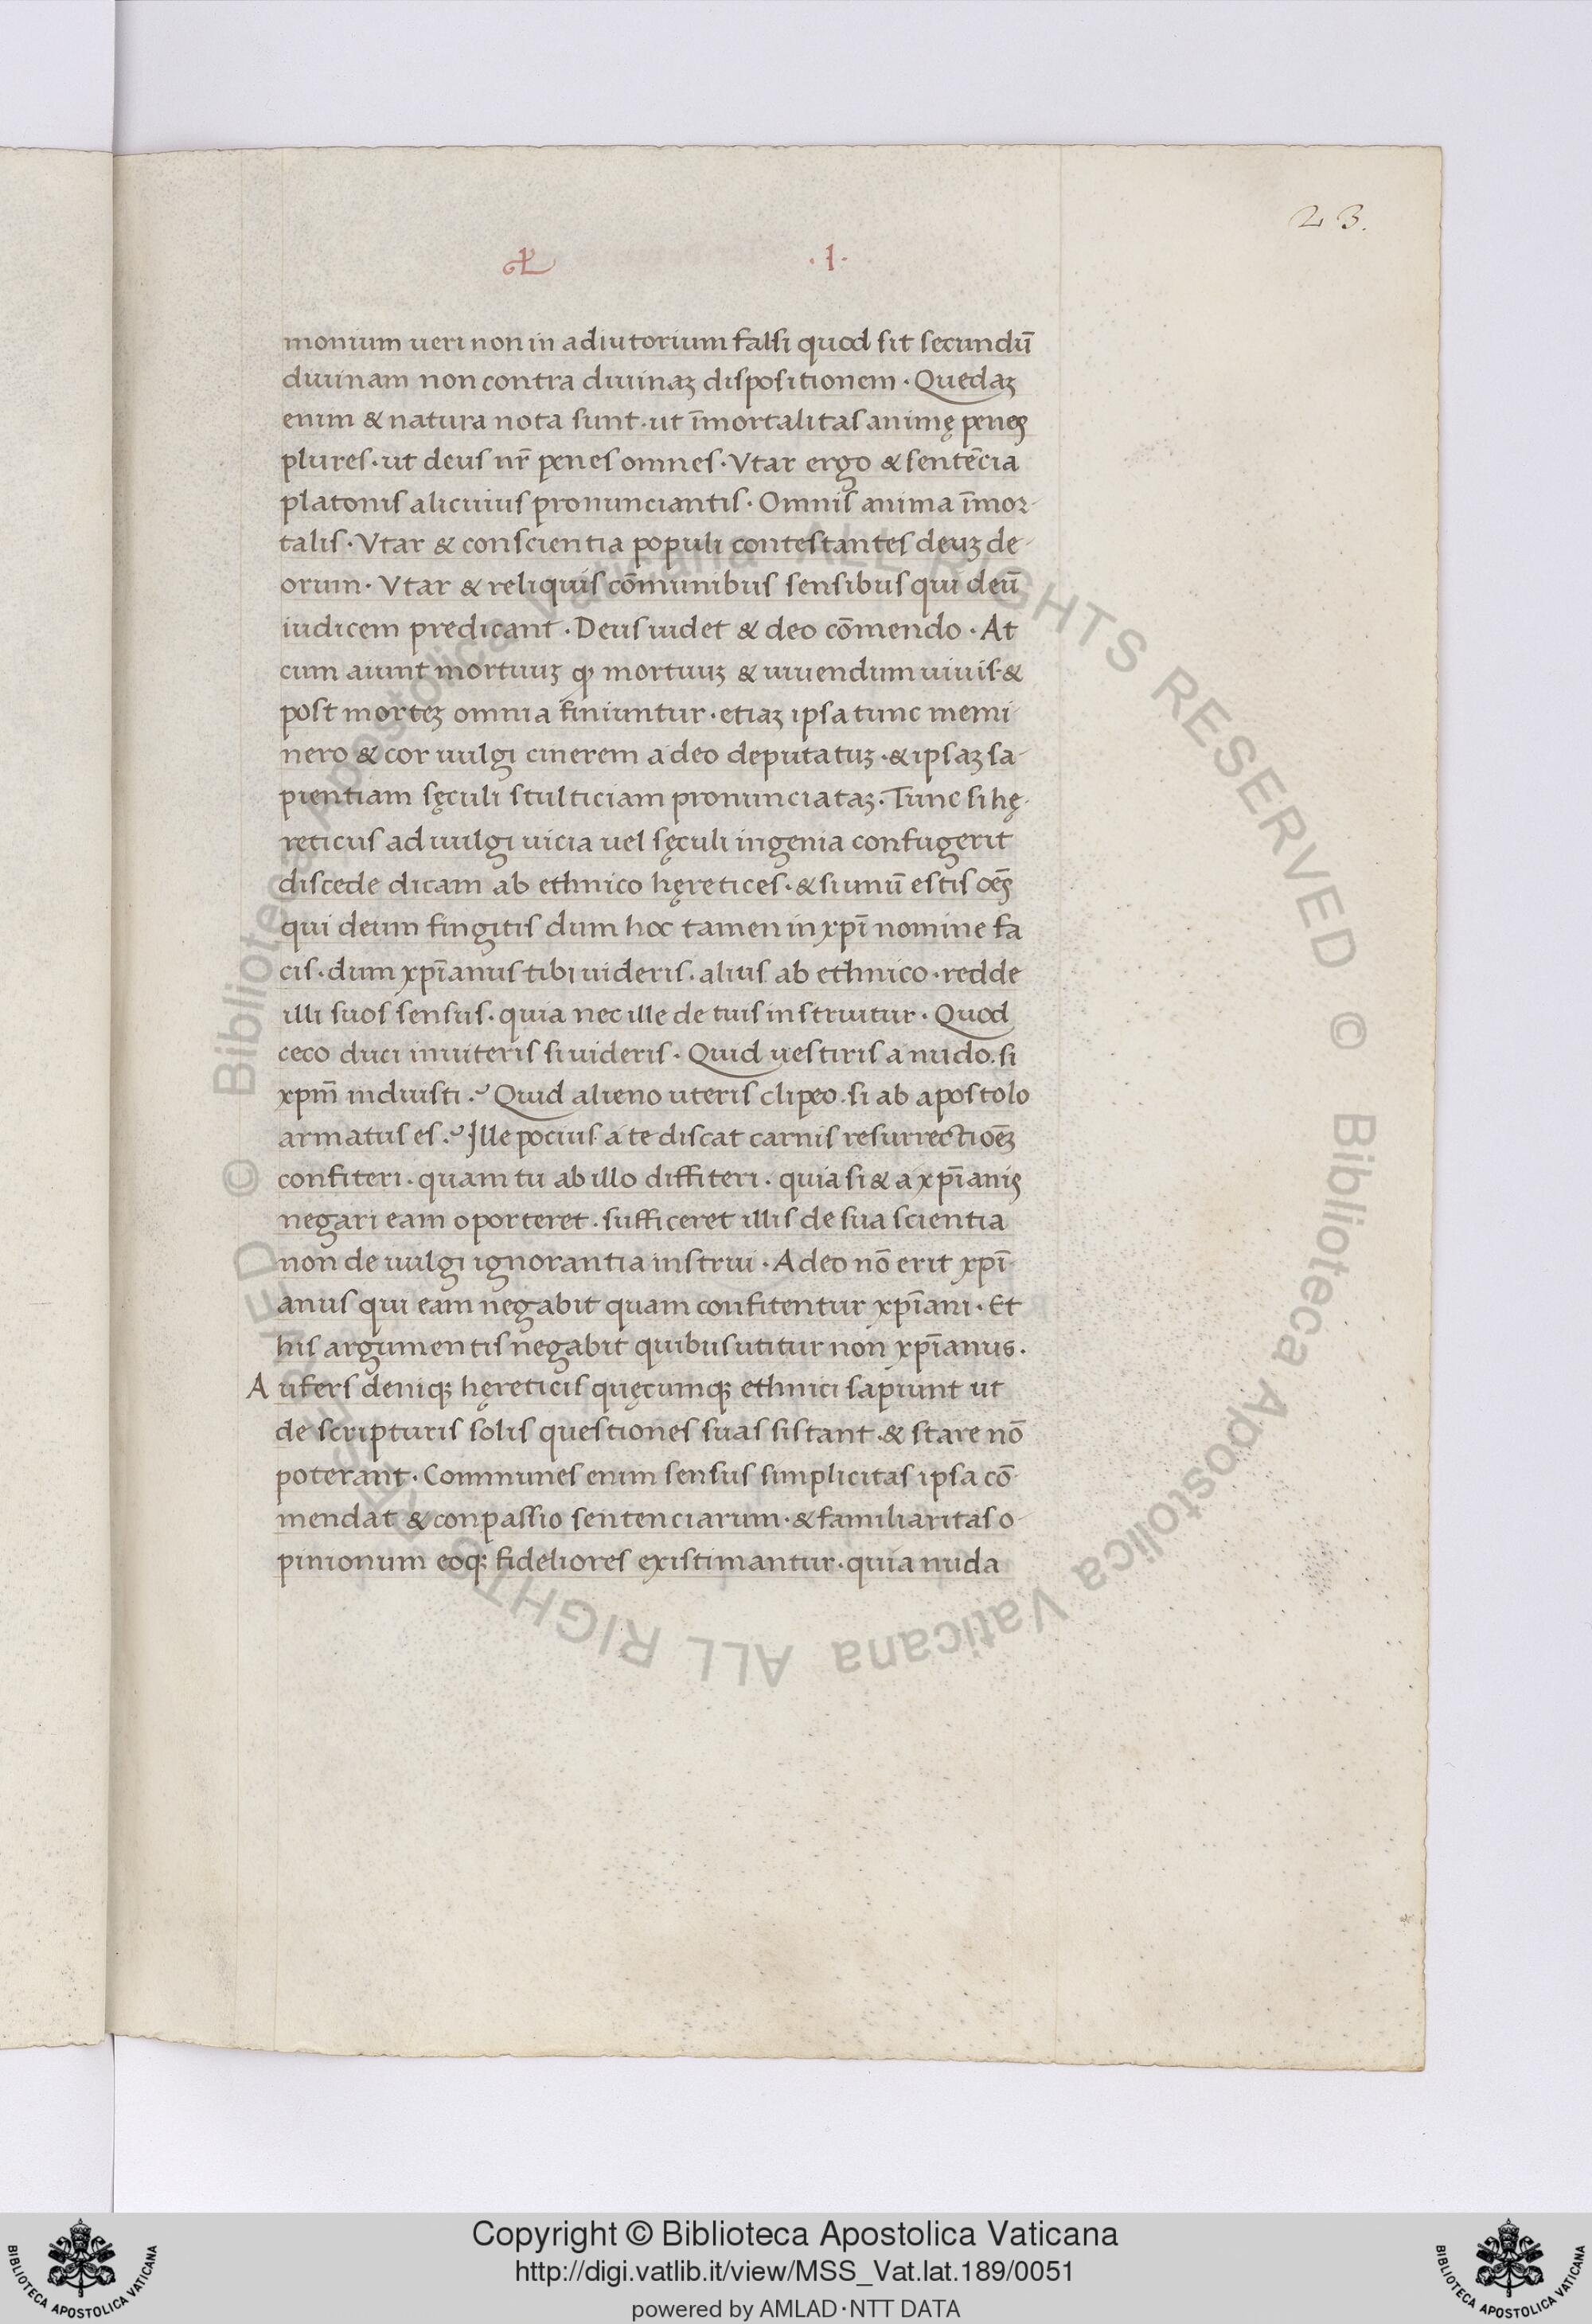 23.
·I·
monium ueri non in adiutorium falsi quod sit secundū
diuinam non contra diuinaʒ dispositionem · Quedaʒ
enim & natura nota sunt · ut īmortalitas animę penes
plures · ut deus nr̄ penes omnes · Vtar ergo & sentēcia
platonis alicuius pronunciantis · Omnis anima īmor-
talis · Vtar & conscientia populi contestantes deuʒ de-
orum · Vtar & reliquis cōmunibus sensibus qui deū
iudicem predicant · Deus uidet & deo cōmendo · At
cum aiunt mortuuʒ qƺ mortuuʒ & uiuendum uiuis · &
post morteʒ omnia finiuntur · etiaʒ ipsa tunc memi-
nero & cor uulgi cinerem a deo deputatuʒ · & ipsaʒ sa-
pientiam sęculi stulticiam pronunciataʒ · Tunc si hę-
reticus ad uulgi uicia uel sęculi ingenia confugerit
discede dicam ab ethnico hęretices · & si unū estis oēs
qui deum fingitis dum hoc tamen in xpī nomine fa
cis · dum xpīanus tibi uideris · alius ab ethnico · redde
illi suos sensus · quia nec ille de tuis instruitur · Quod
ceco duci inuiteris si uideris · Quid uestiris a nudo · si
xpm̄ induisti ? Quid alieno uteris clipeo · si ab apostolo
armatus es ? Ille pocius a te discat carnis resurrectiōeʒ
confiteri · quam tu ab illo diffiteri · quia si & a xpīanis
negari eam oporteret · sufficeret illis de sua scientia
non de uulgi ignorantia instrui · Adeo nō erit xpī-
anus qui eam negabit quam confitentur xpīani · Et
his argumentis negabit quibus utitur non xpīanus ·
Aufers deniqʒ hęreticis quęcumqʒ ethnici sapiunt ut
de scripturis solis questiones suas sistant · & stare nō
poterant · Communes enim sensus simplicitas ipsa cō-
mendat & conpassio sentenciarum · & familiaritas o-
pinionum eoqʒ fideliores existimantur · quia nuda
© Biblioteca Apostolica Vaticana ALL RIGHTS RESERVED © Biblioteca Apostolica Vaticana ALL RIGHTS RESERVED
Copyright © Biblioteca Apostolica Vaticana
http://digi.vatlib.it/view/MSS_Vat.lat.189/0051
powered by AMLAD·NTT DATA
BIBLIOTECA APOSTOLICA VATICANA
BIBLIOTECA APOSTOLICA VATICANA